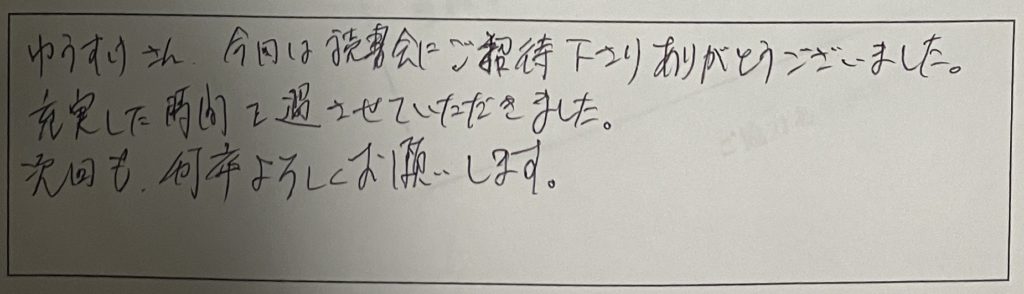 ゆうすけさん、今回は読書会にご招待下さりありがとうございました。
充実した時間を過させていただきました。
次回も、何卒よろしくお願いします。